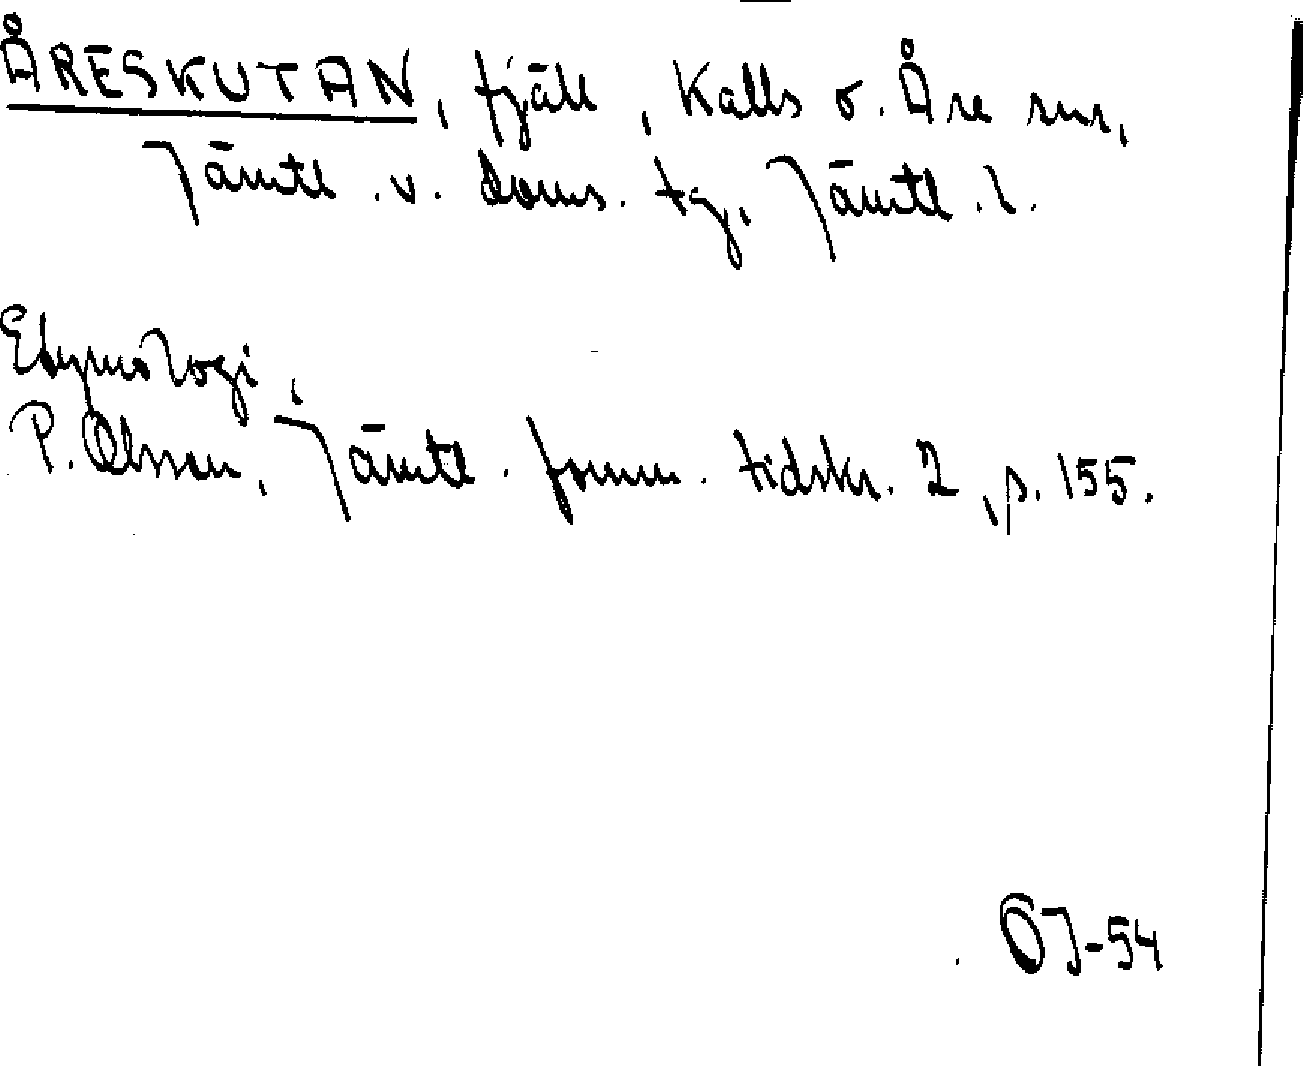 ÅRESKUTAN, fjäll, Kalls o. Åre snr,
Jämtl. v. doms. tg, Jämtl. l.
Etymologi
P. Olsson, i Jämtl. fornm. tidskr. 2, p. 155.
ÖJ-54